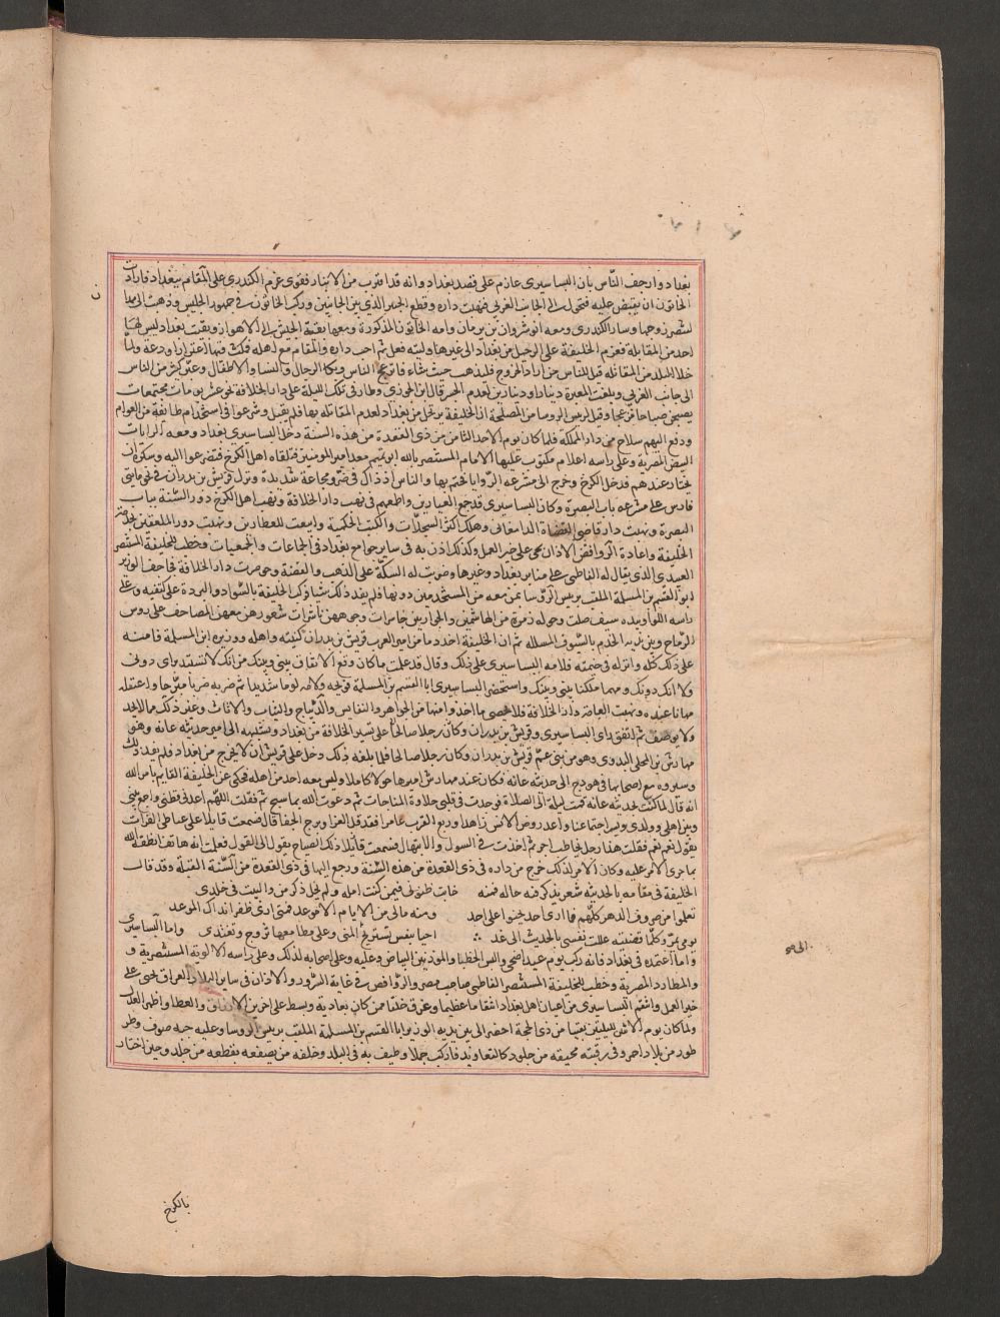 بغداد وارجف النّاس بان البساسيرى عازم على قصد بغداد وانه قد اقترب من الانبار فقوى عزم الكندرى على المقام ببغداد فارادت
الخاتون ان يقبض عليه فتحول الى الجانب الغربى فنهبت داره وقطع الجسر الذى بين الجانبين وركبت الخاتون فى جمهور الجيش وذهبت الى همدان
لتنصر زوجها وسار الكندرى ومعه انوشروان بن تومان وامه الخاتون المذكورة ومعها بقية الجيش الى الاهواز وبقيت بغداد ليس بها
احد من المقاتلة فعزم الخليفة على الرحيل من بغداد الى غيرها وليته فعل ثم احب داره والمقام مع اهله فمكث فيها اغترارا ودعة ولما
خلا البلد من المقاتلة قيل للناس من اراد الخروج فليذهب حيث شاء فانزعج الناس وبكا الرجال والنسا والاطفال وعبر كثير من الناس
الى جانب الغربى وبلغت المعبرة دينارا ودينارين لعدم الجسر قال ابن الجوزى وطار فى تلك الليلة على دار الخلافة نحو عشر بومات مجتمعات
يصيحن صياحا مزعجا وقيل لرئيس الروسا من المصلحة ان الخليفة يرتحل من بغداد لعدم المقاتلة بها فلم يقبل وشرعوا فى استخدام طائفة من العوام
ودفع اليهم سلاح من دار المملكة فلما كان يوم الاحد الثامن من ذى القعدة من هذه السنة دخل البساسيرى بغداد ومعه الرايات
البيض المصرية وعلى راسه اعلام مكتوب عليها الامام المستنصر بالله ابو تميم معد امير المومنين فتلقاه اهل الكرخ فتضرعوا اليه وسئلوه ان
يجتاز عندهم فدخل الكرخ وخرج الى مشرعه الروايا فخيم بها والناس اذ ذاك فى ضر ومجاعة شديدة ونزل قريش بن بدران فى نحو مائتى
فارس على مشرعه باب البصرة وكان البساسيرى قد جمع العيارين واطمعهم فى نهب دار الخلافة ونهب اهل الكرخ دور السنّة بباب
البصرة ونهبت دار قاضى القضاة الدامغانى وهلك اكثر السجلّات والكتب الحكمية وابيعت للعطارين ونهبت دور المتعلقين بخدمة
الخليفة واعادة الروافض الاذان بحى على خير العمل وكذلك اذن به فى ساير جوامع بغداد فى الجماعات والجمعيات وخطب للخليفة المستنصر
العبيدى الذى يقال له الفاطمى على منابر بغداد وغيرها وضربت له السكّة على الذهب والفضة وحوصرت دار الخلافة فجاحف الوزير
ابو القسم بن المسلمة الملقب بريس الروسا بمن معه من المستخدمين دونها فلم يفد ذلك شيا فركب الخليفة بالسّواد والبردة على كتفيه وعلى
راسه اللوا وبيده سيف صلت وحوله زمرة من الهاشميين والجوارى حاسرات وجوههن ناشرات شعورهن معهن المصاحف على روس
الرماح وبين يديه الخدم بالسّيوف المسلله ثم ان الخليفة اخذ ذماما من امير العرب قريش بن بدران لنفسه واهله ووزيره ابن المسلمة فامنه
على ذلك كلّه وانزله فى خيمته فلامه البساسيرى على ذلك وقال قد علمت ما كان وقع الاتفاق بينى وبينك من انك لا تستبد براى دونى
ولا انك دونك ومهما ملكنا بينى وبينك واستحضر البساسيرى ابا القسم بن المسلمة فوبخه ولامه لوما شديدا ثم ضربه ضربا مبرّحا واعتقله
مهانا عنده ونهبت العامه دار الخلافة فلا يحصى ما اخذوا منها من الجواهر والنفايس والدّيباج والثياب والاثاث وغير ذلك مما لا يحد
ولا يوصف ثم اتفق راى البساسيرى وقريش بن بدران وكان رجلا صالحا على تسيير الخلافة من بغداد وتسليمه الى امير حديثه عانه وهو
مهارش بن المجلى البدوى وهو من بنى عمّ قريش بن بدران وكان رجلا صالحا فلما بلغه ذلك دخل على قريش ان لا يخرج من بغداد فلم يفد ذلك
وسيروه مع اصحابهما فى هودج الى حديثه عانه فكان عند مهارش اميرها حولا كاملا وليس معه احد من اهله فحكى عن الخليفة القايم بامر الله
انه قال لما كنت بحديثه عانه قمت ليلة الى الصلاة فوجدت فى قلبى حلاوة المناجات ثم دعوت الله بما سنح ثم قلت اللّهم اعدنى وطنى واجمع بينى
وبين اهلى وولدى ويسر اجتماعنا واعد روض الانس زاهرا وربع القرب عامرا فقد قل العزا وبرح الجفا قال فسمعت قايلا على شاطى الفرات
يقول نعم نعم فقلت هذا رجل يخاطب اخر ثم اخذت فى السول والابتهال فسمعت قائلا ذلك الصياح يقول الى القول فعلت انه هاتف انطقه الله
بما جرى الامر عليه وكان الامر كذلك خرج من داره فى ذى القعدة من هذه السّنة ورجع اليها فى ذى القعدة من السّنة المقبلة وقد قال
الخليفة فى مقامه بالحديثه شعر يذكر فيه حاله فمنه خابت ظنونى فيمن كنت امله ولم يخل ذكر من واليت فى خلدى
تعلموا من صروف الدهر كلّهم فما ارى احد يحنوا على احد ومنه مالى من الايام الا موعد فمتى ارى ظفرا بذاك الموعد
يومى يمرّ وكلّما قضيته عللت نفسى بالحديث الى غد ؞ احيا بنفس تستريح الى المنى وعلى مطامعها تروح وتغتدى واما البساسيرى
وما اعتمده فى بغداد فانه ركب يوم عيد اضحى والبس الخطبا والموذنين البياض وعليه وعلى اصحابه لذلك وعلى راسه الالوية المستنصرية و
والمطارد المصرية وخطب للخليفة المستنصر الفاطمى صاحب مصر والروافض فى غاية السّرور والاذان فى ساير البلاد العراق بحى على
خير العمل وانتقم البساسيرى من اعيان اهل بغداد انتقاما عظيما وغرق خلقا من كان يعاديه وبسط على اخرين الارزاق والعطا واظهر العدل
ولما كان يوم الاثنين لليلتين بقيتا من ذى الحجة احضر الى بين يديه الوزير ابا القسم بن المسلمة الملقب بريس الروسا وعليه جبه صوف وطر
طور من لباد احمر وفى رقبته مخنقه من جلود كالتعاويذ فاركب جملا وطيف به فى البلد وخلفه من يصفعه بقطعه من جلد وحين اجتاز
بالكرخ